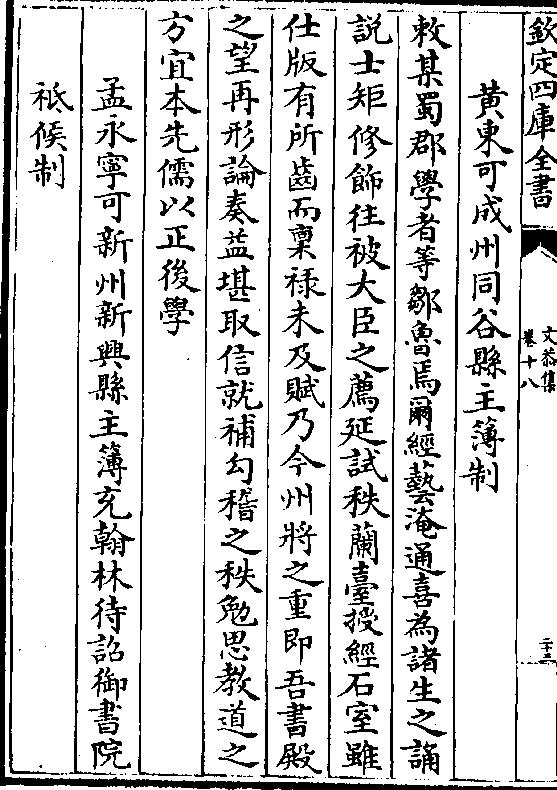 欽定四庫全書
文恭集
卷十八
二十三
黃東可成州同谷縣主簿制
敕某蜀郡學者等鄒魯焉爾經藝淹通喜為諸生之誦
説士矩修飾往被大臣之薦延試秩蘭臺授經石室雖
仕版有所齒而稟禄未及賦乃今州將之重即吾書殿
之望再形論奏益堪取信就補勾稽之秩勉思教道之
方宜本先儒以正後學
孟永寧可新州新興縣主簿充翰林待詔御書院
祗候制